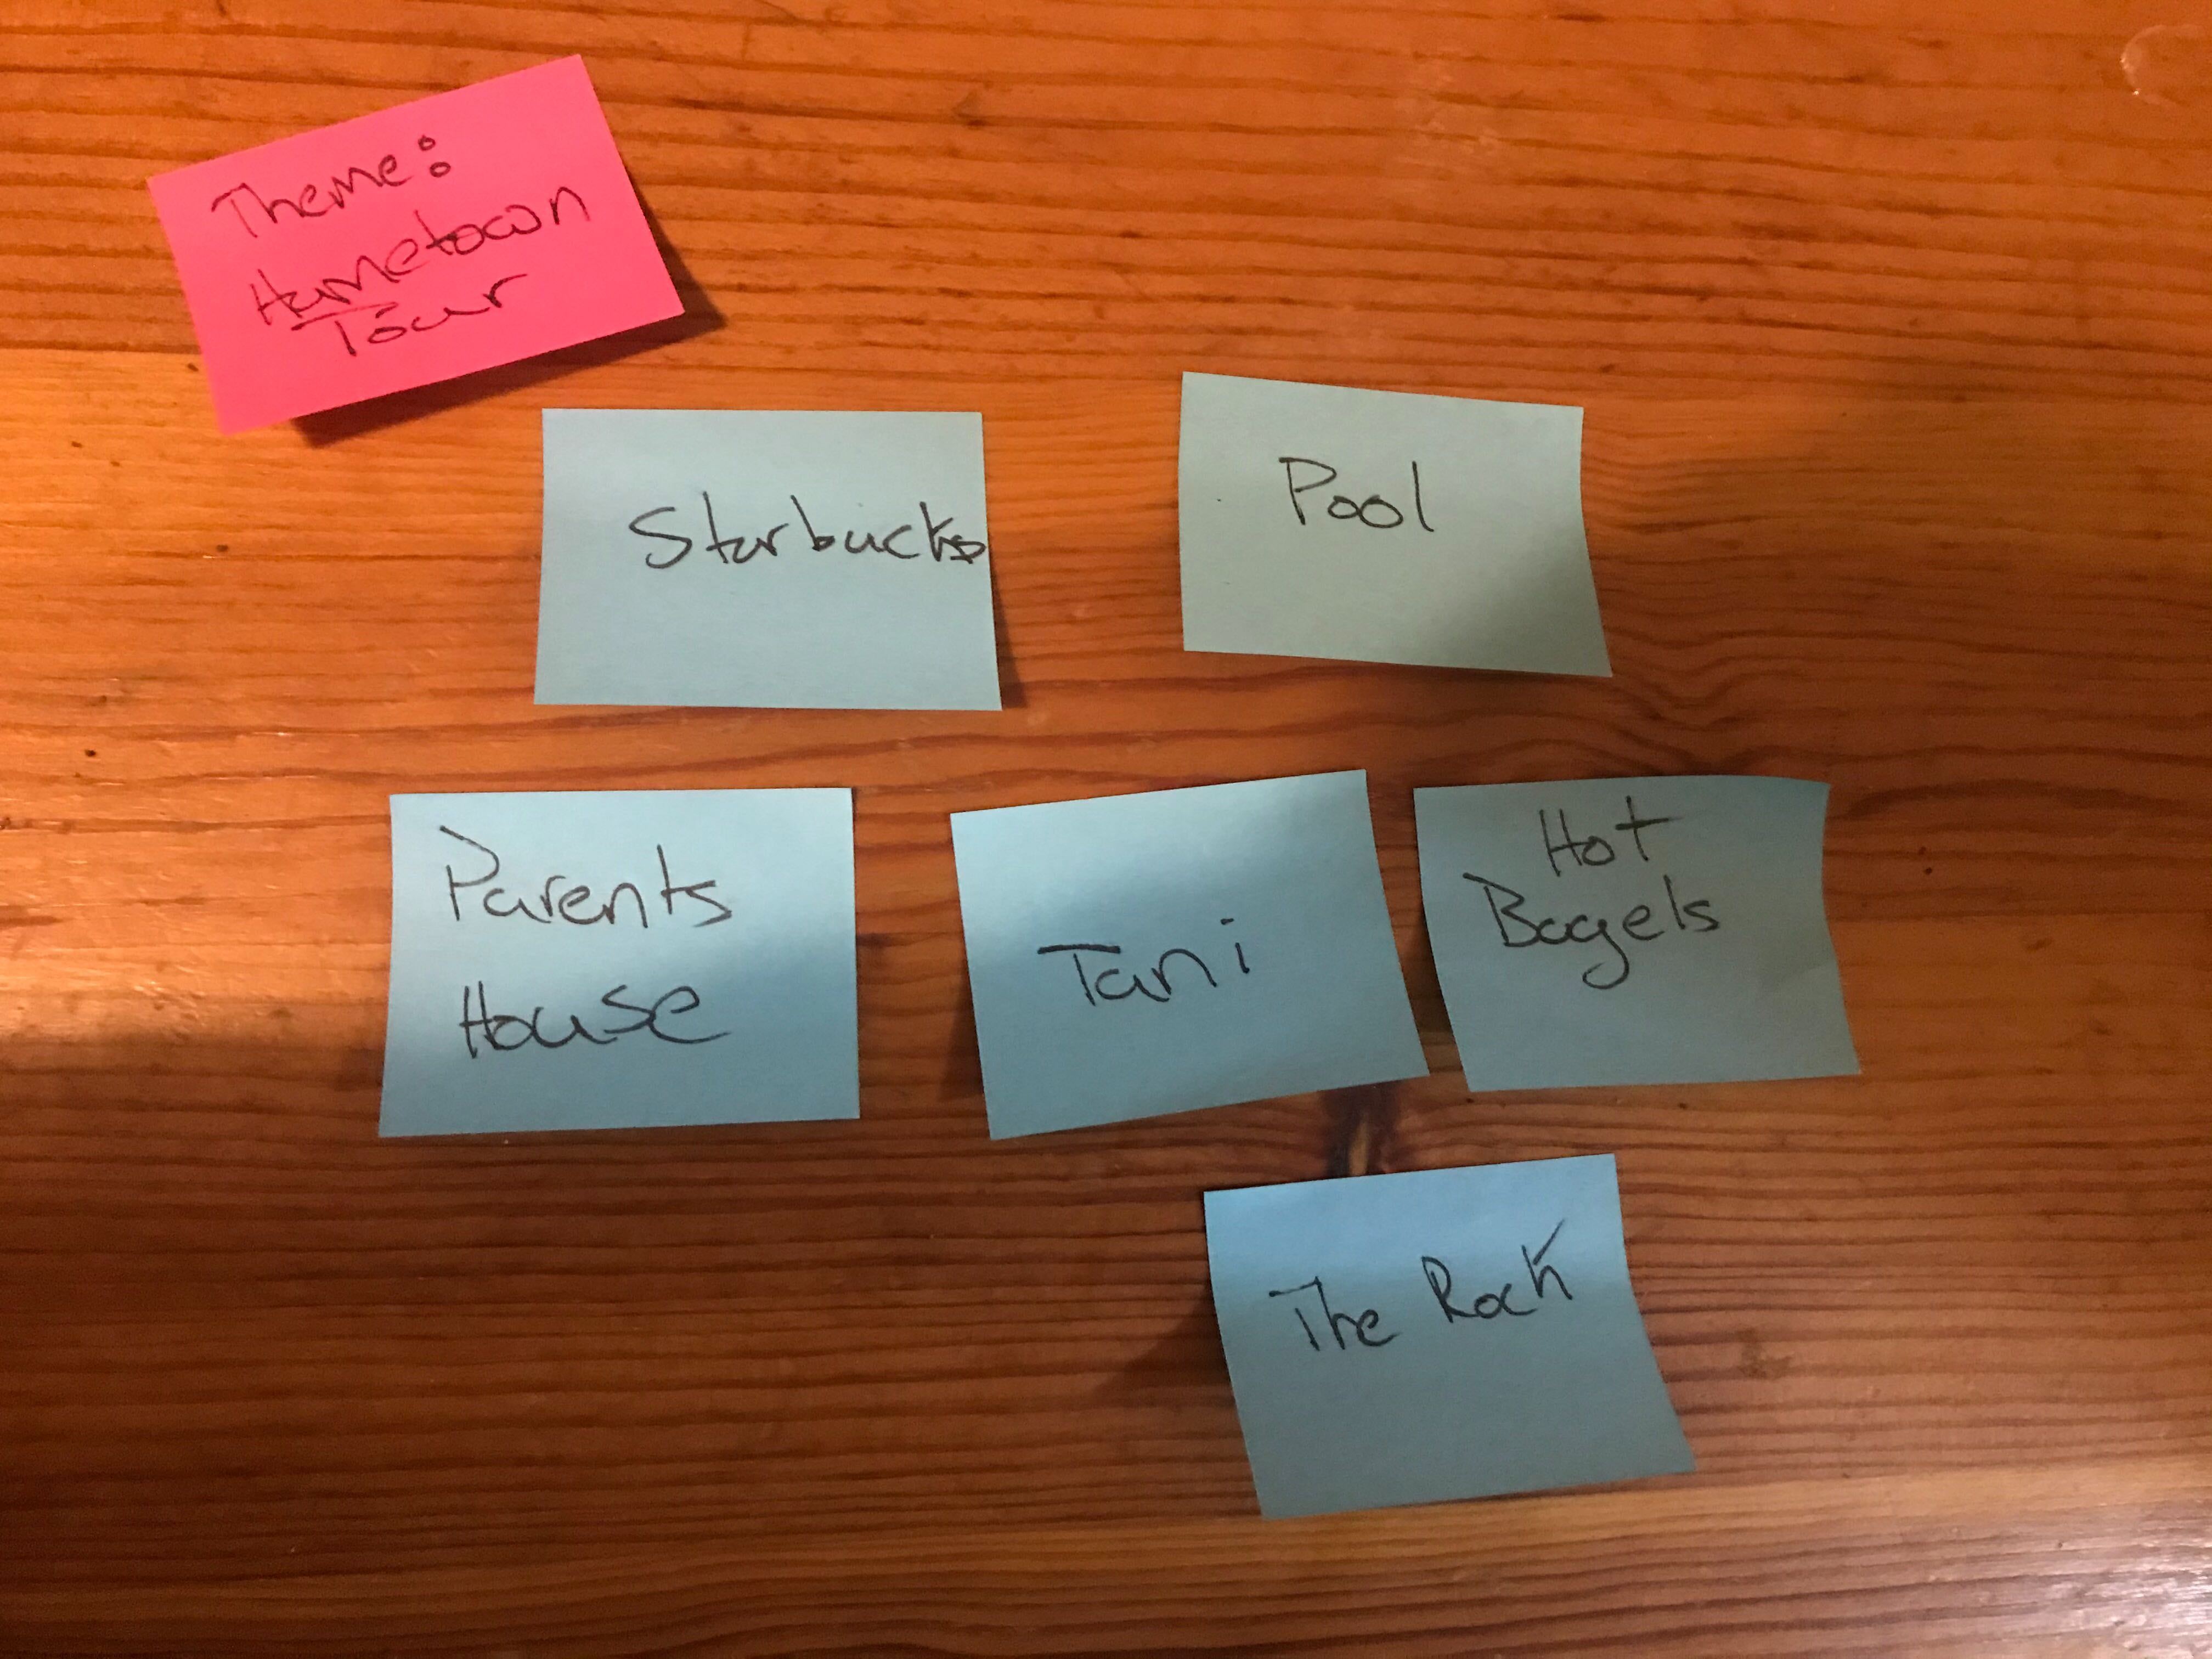 Theme:
Hometown
Tour
Starbucks
Pool
Parents
House
Tani
Hot
Bagels
The Rock